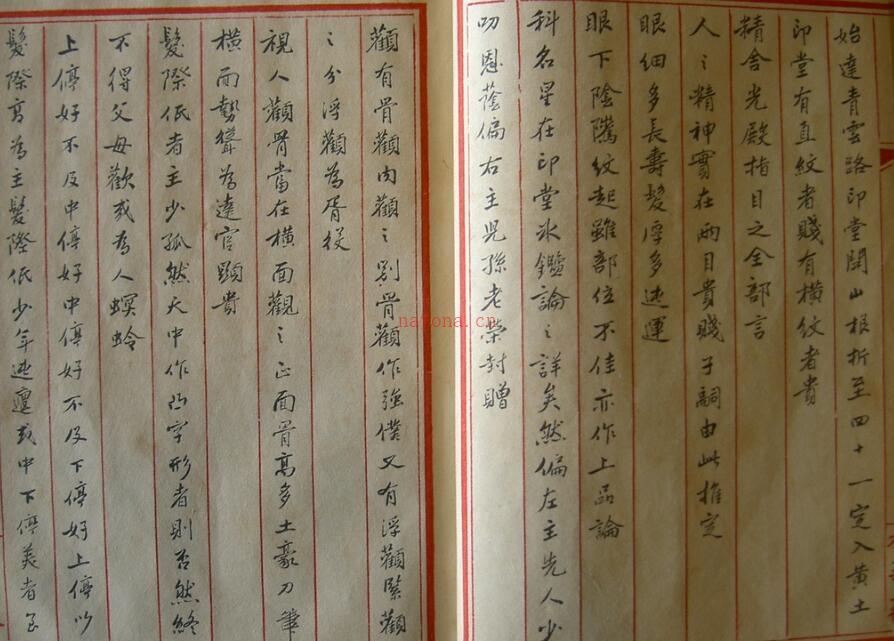 始達青雲路印堂開山根折至四十一定入黄土
印堂有直紋者賤有横紋者貴
精舍光殿指目之全部言
人之精神實在兩目貴賤子嗣由此推定
眼細多長壽髮厚多迍運
眼下陰騭紋起雖部位不佳亦作上品論
科名星在印堂冰鑑論之詳矣然偏左主先人少
叨恩蔭偏右主児孫老榮封贈
顴有骨顴肉顴之别骨顴作強僕又有浮顴緊顴
之分浮顴為胥役
視人顴骨當在横面觀之正面骨高多土豪刀筆
横面勢聳為達官顯貴
髮際低者主少孤然天中作凸字形者則否然終
不得父母歡或為人螟蛉
上停好不及中停好中停好不及下停好上停以
髮際髙為主髮際低少年迍邅或中下停美者
natona.cn